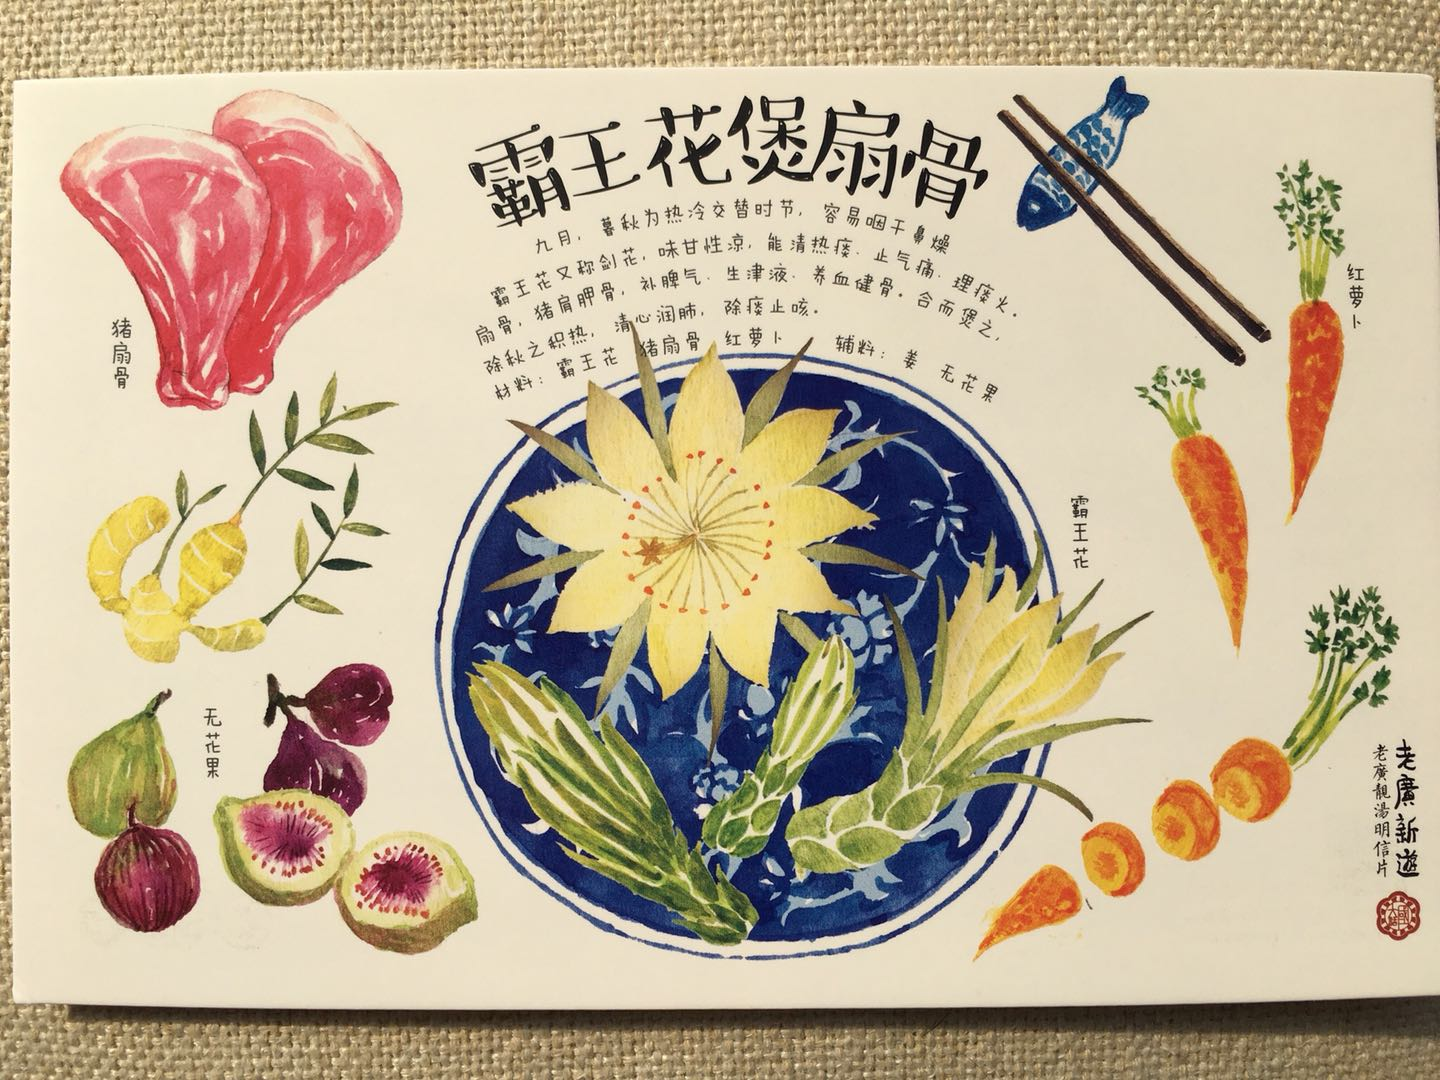 霸王花煲扇骨
九月，暮秋为热冷交替时节，容易咽干鼻燥
霸王花又称剑花，味甘性凉，能清热痰、止气痛、理痰火。
扇骨，猪肩胛骨，补脾气、生津液、养血健骨。合而煲之，
除秋之积热，清心润肺，除痰止咳。
材料：霸王花 猪扇骨 红萝卜 辅料：姜 无花果
猪扇骨
红萝卜
霸王花
无花果
老廣新遊
老廣靚湯明信片